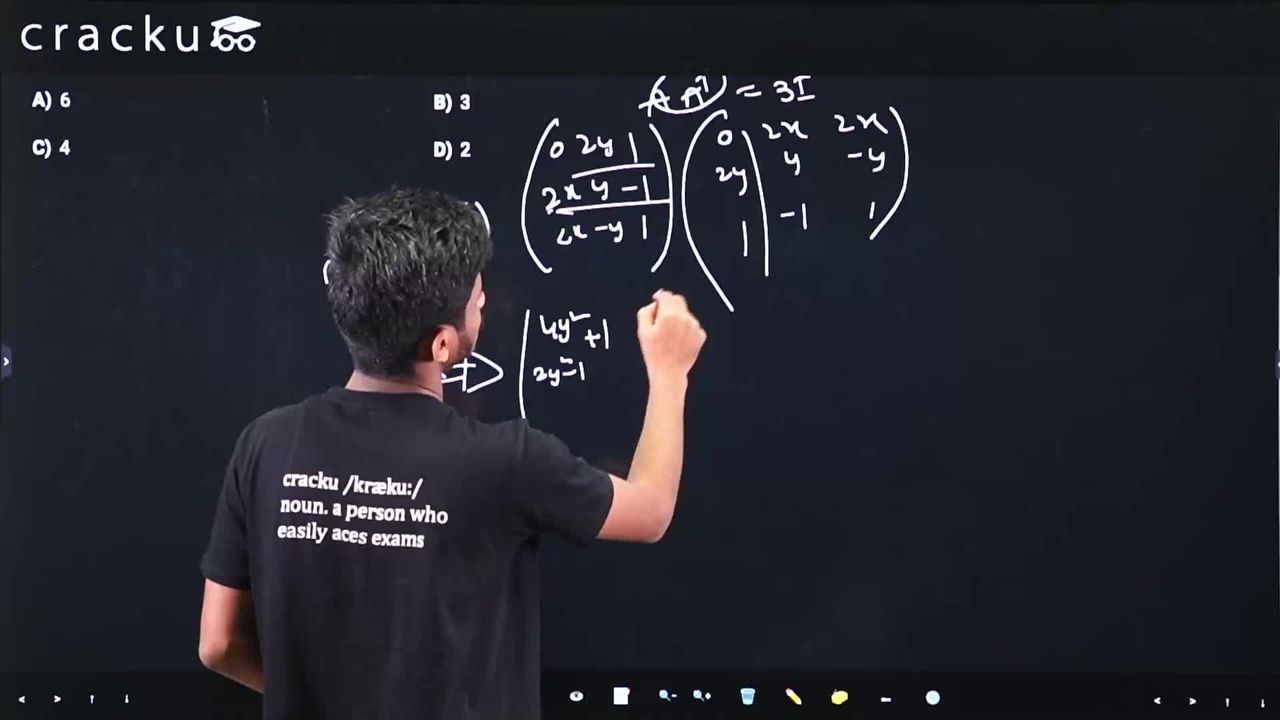 cracku
A) 6
B) 3
C) 4
D) 2
A Aᵀ = 3I
0 2y 1
2x y -1
2x -y 1
0 2x 2x
2y y -y
1 -1 1
4y² + 1
2y² - 1
cracku /kræku:/
noun. a person who
easily aces exams